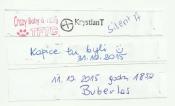 Crazy Baby
TFTC
KrystianT
Silent A
Kopice tu byli
31.10.2015
11.12.2015 godz. 1832
Buberlos